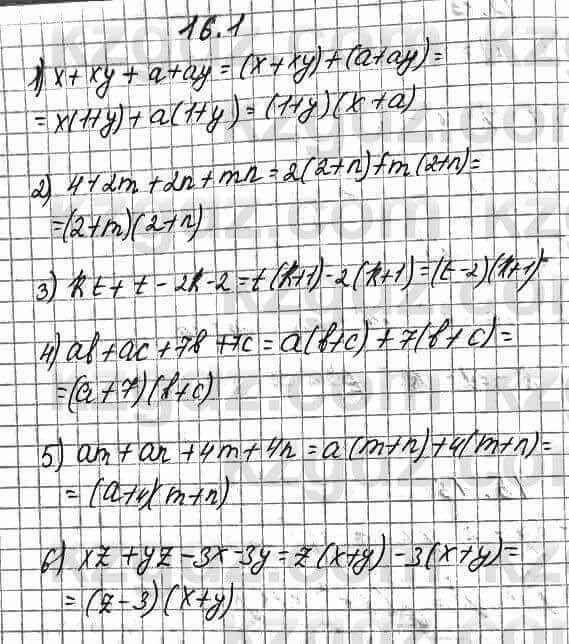 16.1
1) x + xy + a + ay = (x + xy) + (a + ay) =
= x(1+y) + a(1+y) = (1+y)(x+a)
2) 4 + 2m + 2n + mn = 2(2+n) + m(2+n) =
= (2+m)(2+n)
3) kt + t - 2k - 2 = t(k+1) - 2(k+1) = (t-2)(k+1)
4) ab + ac + 7b + 7c = a(b+c) + 7(b+c) =
= (a+7)(b+c)
5) am + an + 4m + 4n = a(m+n) + 4(m+n) =
= (a+4)(m+n)
6) xz + yz - 3x - 3y = z(x+y) - 3(x+y) =
= (z-3)(x+y)